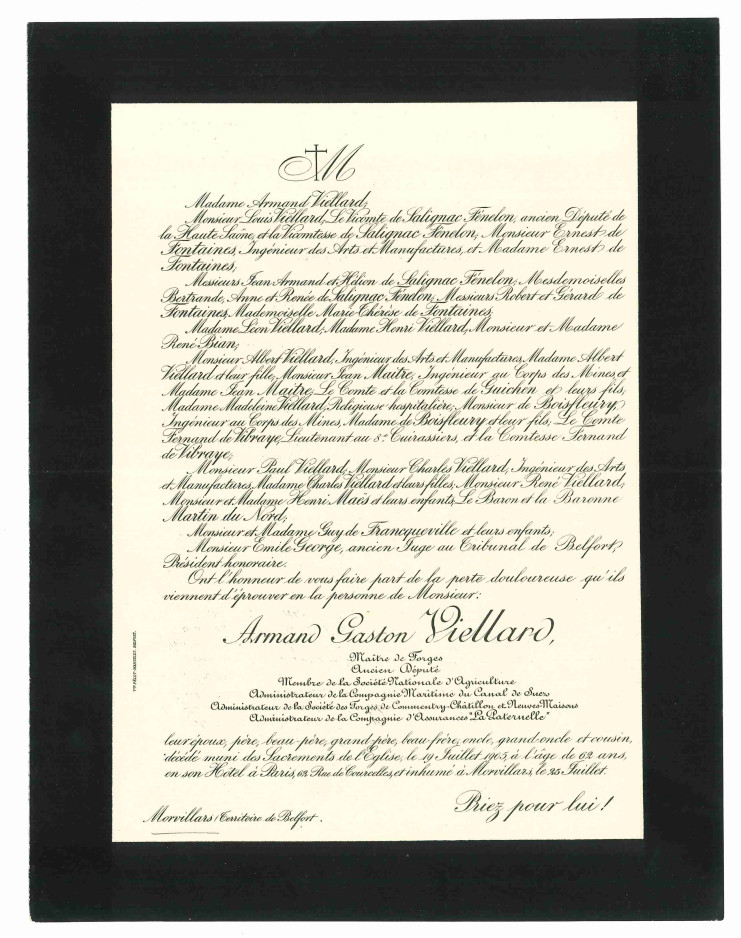 M
Madame Armand Viellard;
Monsieur Louis Viellard, Le Vicomte de Salignac Fénelon, ancien Député de
la Haute Saône, et la Vicomtesse de Salignac Fénelon, Monsieur Ernest de
Fontaines, Ingénieur des Arts et Manufactures, et Madame Ernest de
Fontaines;
Messieurs Jean Armand et Hélion de Salignac Fénelon, Mesdemoiselles
Bertrande, Anne et Renée de Salignac Fénelon, Messieurs Robert et Gérard de
Fontaines, Mademoiselle Marie-Thérèse de Fontaines;
Madame Léon Viellard, Madame Henri Viellard, Monsieur et Madame
René Bian;
Monsieur Albert Viellard, Ingénieur des Arts et Manufactures, Madame Albert
Viellard et leur fille, Monsieur Jean Maitre, Ingénieur au Corps des Mines, et
Madame Jean Maitre, Le Comte et la Comtesse de Guichen et leurs fils,
Madame Madeleine Viellard, Religieuse hospitalière, Monsieur de Boisfleury,
Ingénieur au Corps des Mines, Madame de Boisfleury et leur fils, Le Comte
Fernand de Vibraye, Lieutenant au 8e Cuirassiers, et la Comtesse Fernand
de Vibraye;
Monsieur Paul Viellard, Monsieur Charles Viellard, Ingénieur des Arts
et Manufactures, Madame Charles Viellard et leurs filles, Monsieur René Viellard,
Monsieur et Madame Henri Maës et leurs enfants, Le Baron et la Baronne
Martin du Nord;
Monsieur et Madame Guy de Francqueville et leurs enfants;
Monsieur Emile George, ancien Juge au Tribunal de Belfort,
Président honoraire.
Ont l'honneur de vous faire part de la perte douloureuse qu'ils
viennent d'éprouver en la personne de Monsieur:
Armand Gaston Viellard,
Maître de Forges
Ancien Député
Membre de la Société Nationale d'Agriculture
Administrateur de la Compagnie Maritime du Canal de Suez
Administrateur de la Société des Forges de Commentry-Châtillon et Neuves Maisons
Administrateur de la Compagnie d'Assurances "La Paternelle"
leur époux, père, beau-père, grand-père, beau-frère, oncle, grand-oncle et cousin,
décédé muni des Sacrements de l'Eglise, le 19 Juillet 1905, à l'âge de 62 ans,
en son Hôtel à Paris, 62 Rue de Courcelles, et inhumé à Morvillars, le 25 Juillet.
Priez pour lui!
Morvillars (Territoire de Belfort.